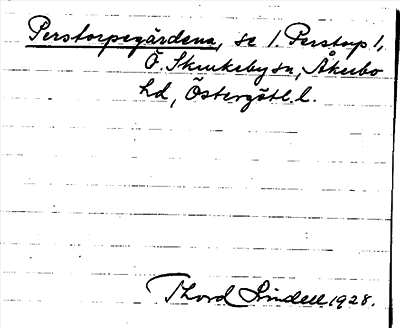 Perstorpegårdena, se 1. Perstorp 1,
Ö. Skrukeby sn, Åkerbo
hd, Östergötl. l.
Thord Lindell 1928.